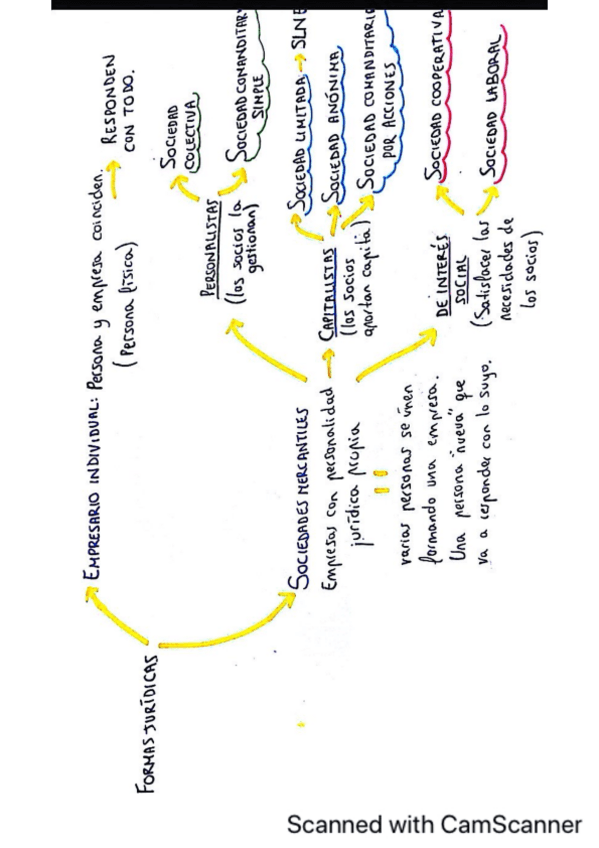 FORMAS JURÍDICAS
EMPRESARIO INDIVIDUAL: Persona y empresa coinciden.
(Persona física)
RESPONDEN
CON TODO.
SOCIEDADES MERCANTILES
Empresas con personalidad
jurídica propia
varias personas se unen
formando una empresa.
Una persona "nueva" que
va a responder con lo suyo.
PERSONALISTAS
(los socios la
gestionan)
SOCIEDAD
COLECTIVA
SOCIEDAD COMANDITAR
SIMPLE
CAPITALISTAS
(los socios
aportan capital)
SOCIEDAD LIMITADA → SLNE
SOCIEDAD ANÓNIMA
SOCIEDAD COMANDITARIA
POR ACCIONES
DE INTERÉS
SOCIAL
(Satisfacer las
necesidades de
los socios)
SOCIEDAD COOPERATIVA
SOCIEDAD LABORAL
Scanned with CamScanner